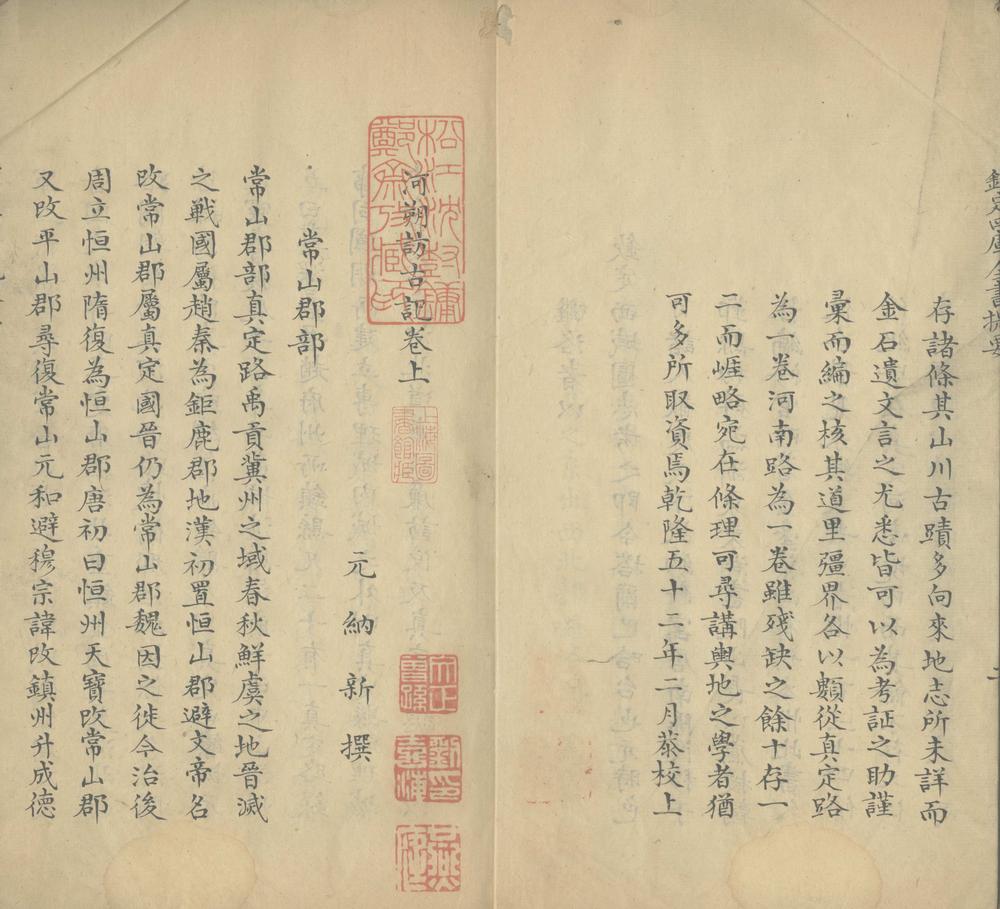 存諸條其山川古蹟多向來地志所未詳而
金石遺文言之尤悉皆可以為考証之助謹
彙而編之核其道里彊界各以類從真定路
為一卷河南路為一卷雖殘缺之餘十存一
二而崕略宛在條理可尋講輿地之學者猶
可多所取資焉乾隆五十二年二月恭校上
河朔訪古記卷上
元 納新 撰
常山郡部
常山郡部真定路禹貢冀州之域春秋鮮虞之地晉滅
之戰國屬趙秦為鉅鹿郡地漢初置恒山郡避文帝名
改常山郡屬真定國晉仍為常山郡魏因之徙今治後
周立恒州隋復為恒山郡唐初曰恒州天寶改常山郡
又改平山郡尋復常山元和避穆宗諱改鎮州升成德